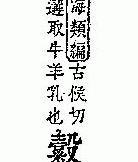 海類編古候切
選取牛羊乳也